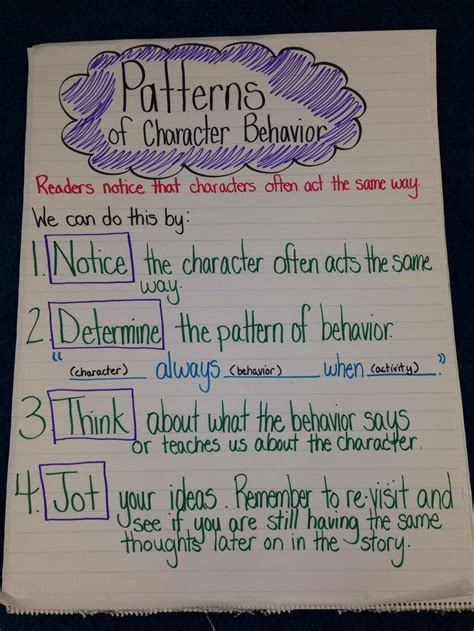 Patterns
of Character Behavior
Readers notice that characters often act the same way.
We can do this by:
1. Notice the character often acts the same
way.
2. Determine the pattern of behavior.
" (character) always (behavior) when (activity) ."
3. Think about what the behavior says
or teaches us about the character.
4. Jot your ideas. Remember to re-visit and
see if you are still having the same
thoughts later on in the story.